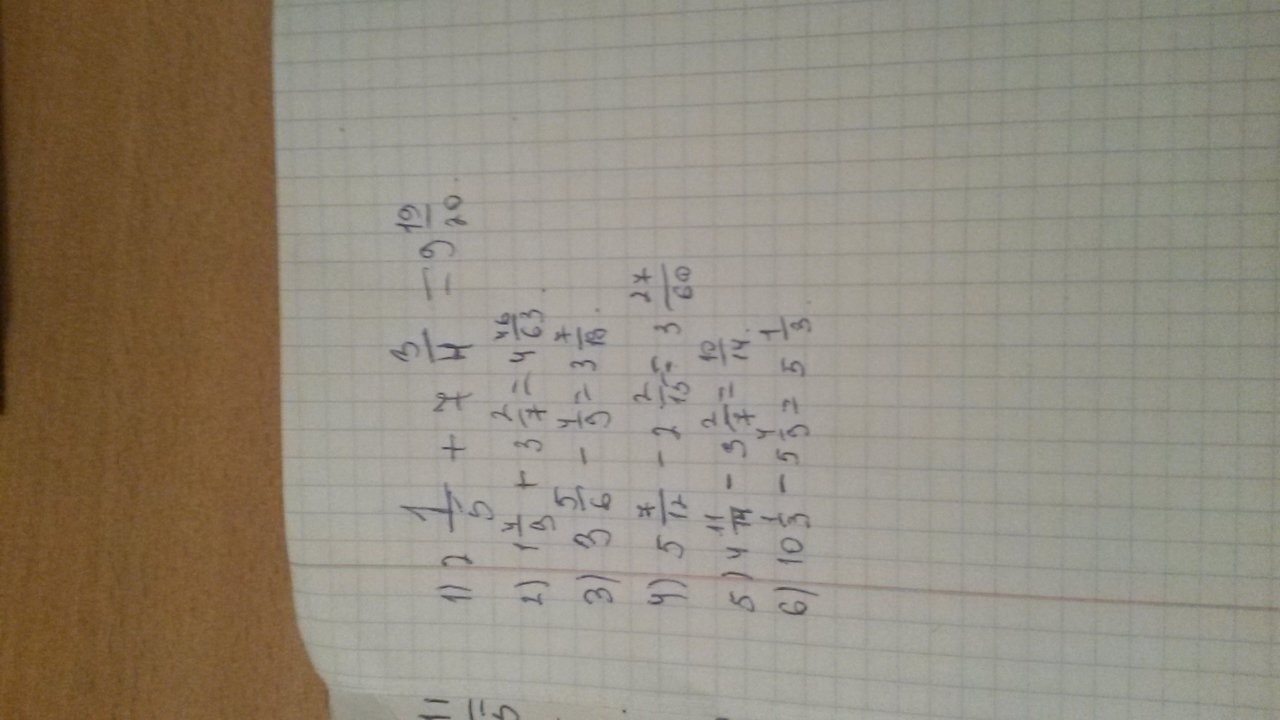 1) 2 1/5 + 7 3/4 = 9 19/20.
2) 1 4/9 + 3 2/7 = 4 46/63.
3) 3 5/6 - 4/9 = 3 7/18.
4) 5 7/12 - 2 2/15 = 3 27/60
5) 4 11/14 - 3 2/7 = 10/14.
6) 10 1/3 - 5 4/9 = 5 1/3.
11